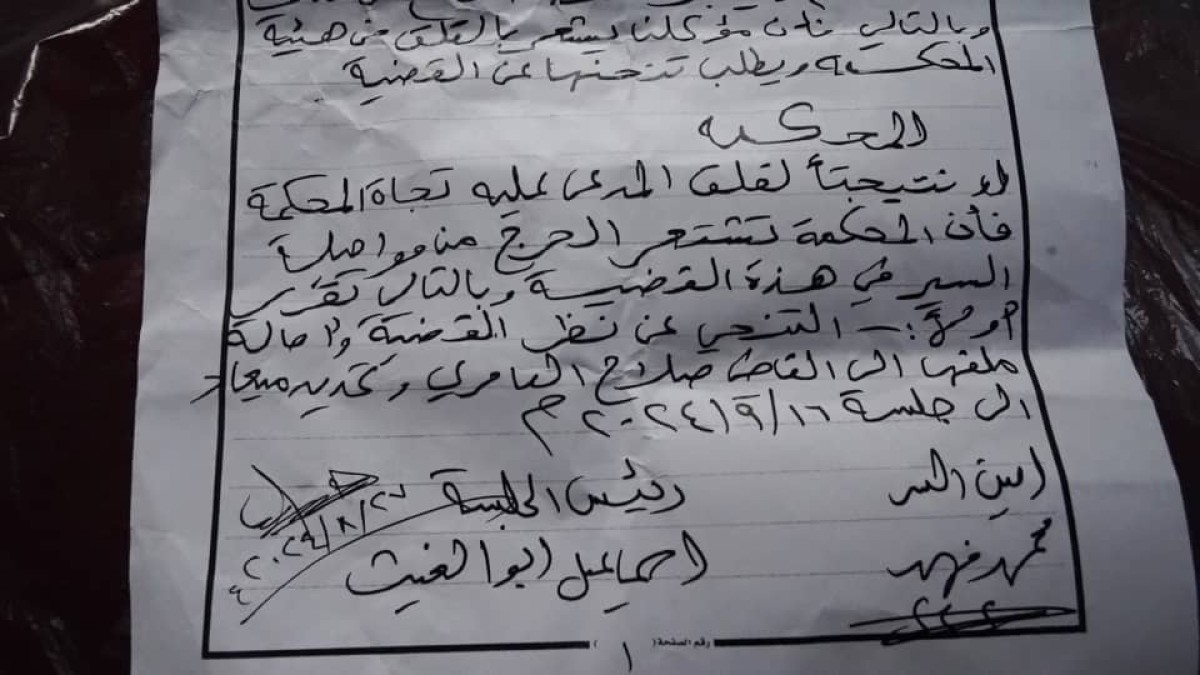 وبالتالي فان مؤكلنا يشعر بالقلق من هيئة
المحكمة ويطلب تنحيها عن القضية
المحكمة
نتيجتاً لقلق المدعى عليه تجاة المحكمة
فأن المحكمة تشتعر الحرج من مواصلة
السير في هذة القضية وبالتالي تقرر
أولاً :- التنحي عن نظر القضية واحالة
ملفها الى القاضي صلاح العامري وتحديد ميعاد
الى جلسة ٢٠٢٤/٩/١٦م
امين السر
رئيس الجلسة
محمد فهد
اسماعيل ابو الغيث
رقم الصفحة ( ١ )